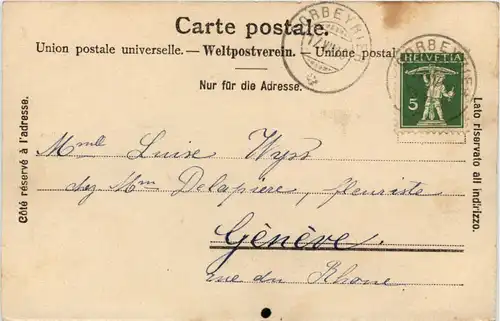 Carte postale.
Union postale universelle. — Weltpostverein. — Unione postale
Nur für die Adresse.
CORBEYRIER
CORBEYRIER
HELVETIA
5
Côté réservé à l'adresse.
Lato riservato all indirizzo.
Mmlle Luise Wyss
chez Mm Delapierre, fleuriste
Gènève.
rue du Rhone